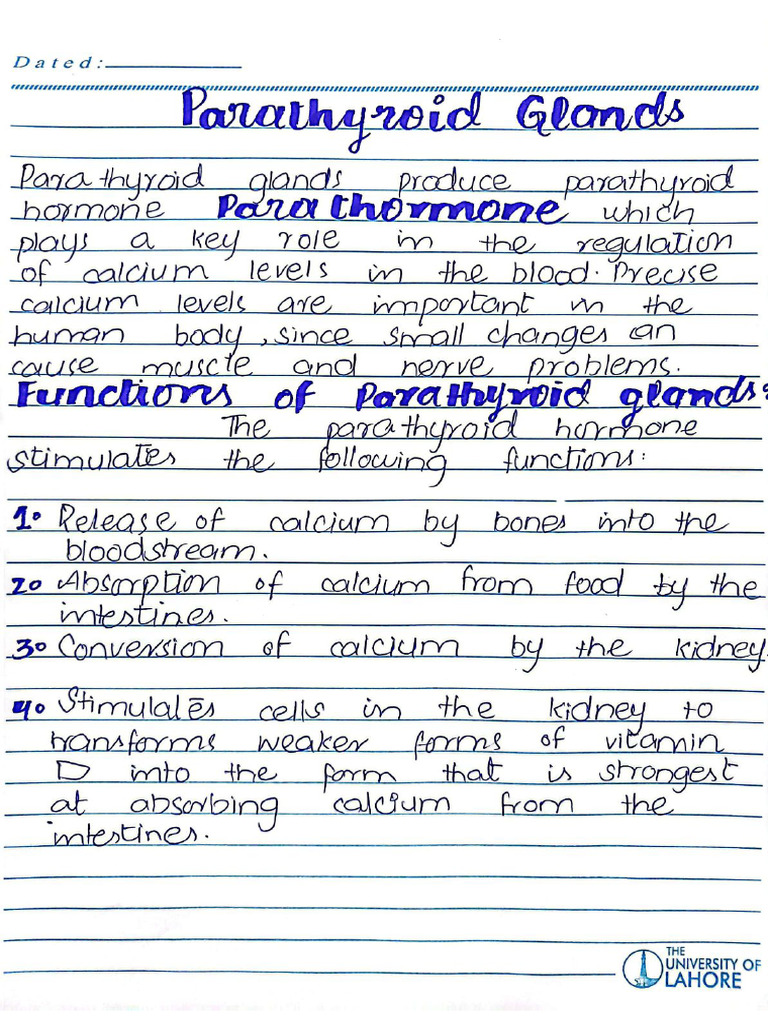 Dated:
Parathyroid Glands
Parathyroid glands produce parathyroid
hormone Parathormone which
plays a key role in the regulation
of calcium levels in the blood. Precise
calcium levels are important in the
human body, since small changes an
cause muscle and nerve problems.
Functions of Parathyroid glands:
The parathyroid hormone
stimulates the following functions:
1. Release of calcium by bones into the
bloodstream.
2. Absorption of calcium from food by the
intestines.
3. Conversion of calcium by the kidney.
4. Stimulates cells in the kidney to
transforms weaker forms of vitamin
D into the form that is strongest
at absorbing calcium from the
intestines.
THE
UNIVERSITY OF
LAHORE